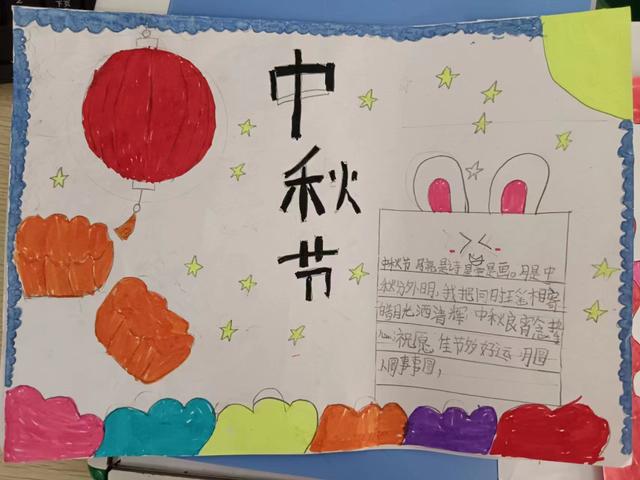 中秋节
中秋节 月亮是诗星空是画。月是中
秋分外明,我把问候遥相寄
皓月洒清辉 中秋良宵念挚
心祝愿 佳节多好运 月圆
人圆事事圆,